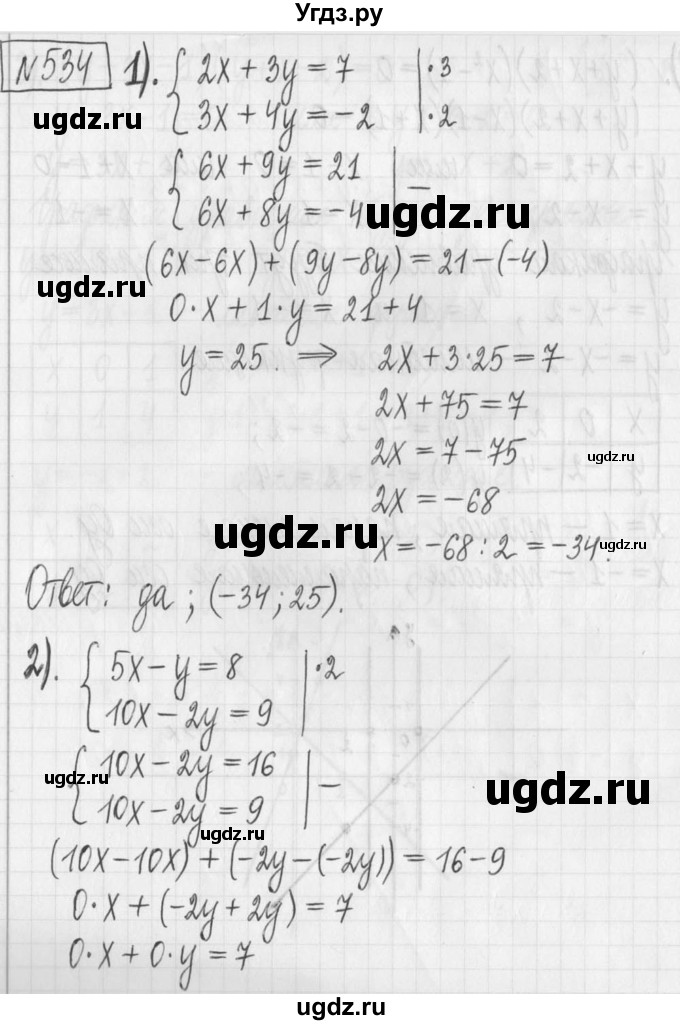 Угдз.ру
№534 1). { 2x + 3y = 7 | ·3
3x + 4y = -2 | ·2
ugdz.ru
{ 6x + 9y = 21 | −
6x + 8y = -4
ugdz.ru
(6x - 6x) + (9y - 8y) = 21 - (-4)
ugdz.ru
0·x + 1·y = 21 + 4
y = 25. ⇒ 2x + 3·25 = 7
2x + 75 = 7
2x = 7 - 75
ugdz.ru
2x = -68
ugdz.ru
x = -68 : 2 = -34.
ugdz.ru
Ответ: да; (-34; 25).
2). { 5x - y = 8 | ·2
10x - 2y = 9
{ 10x - 2y = 16 | −
ugdz.ru
10x - 2y = 9
ugdz.ru
ugdz.ru
(10x - 10x) + (-2y - (-2y)) = 16 - 9
0·x + (-2y + 2y) = 7
0·x + 0·y = 7
ugdz.ru